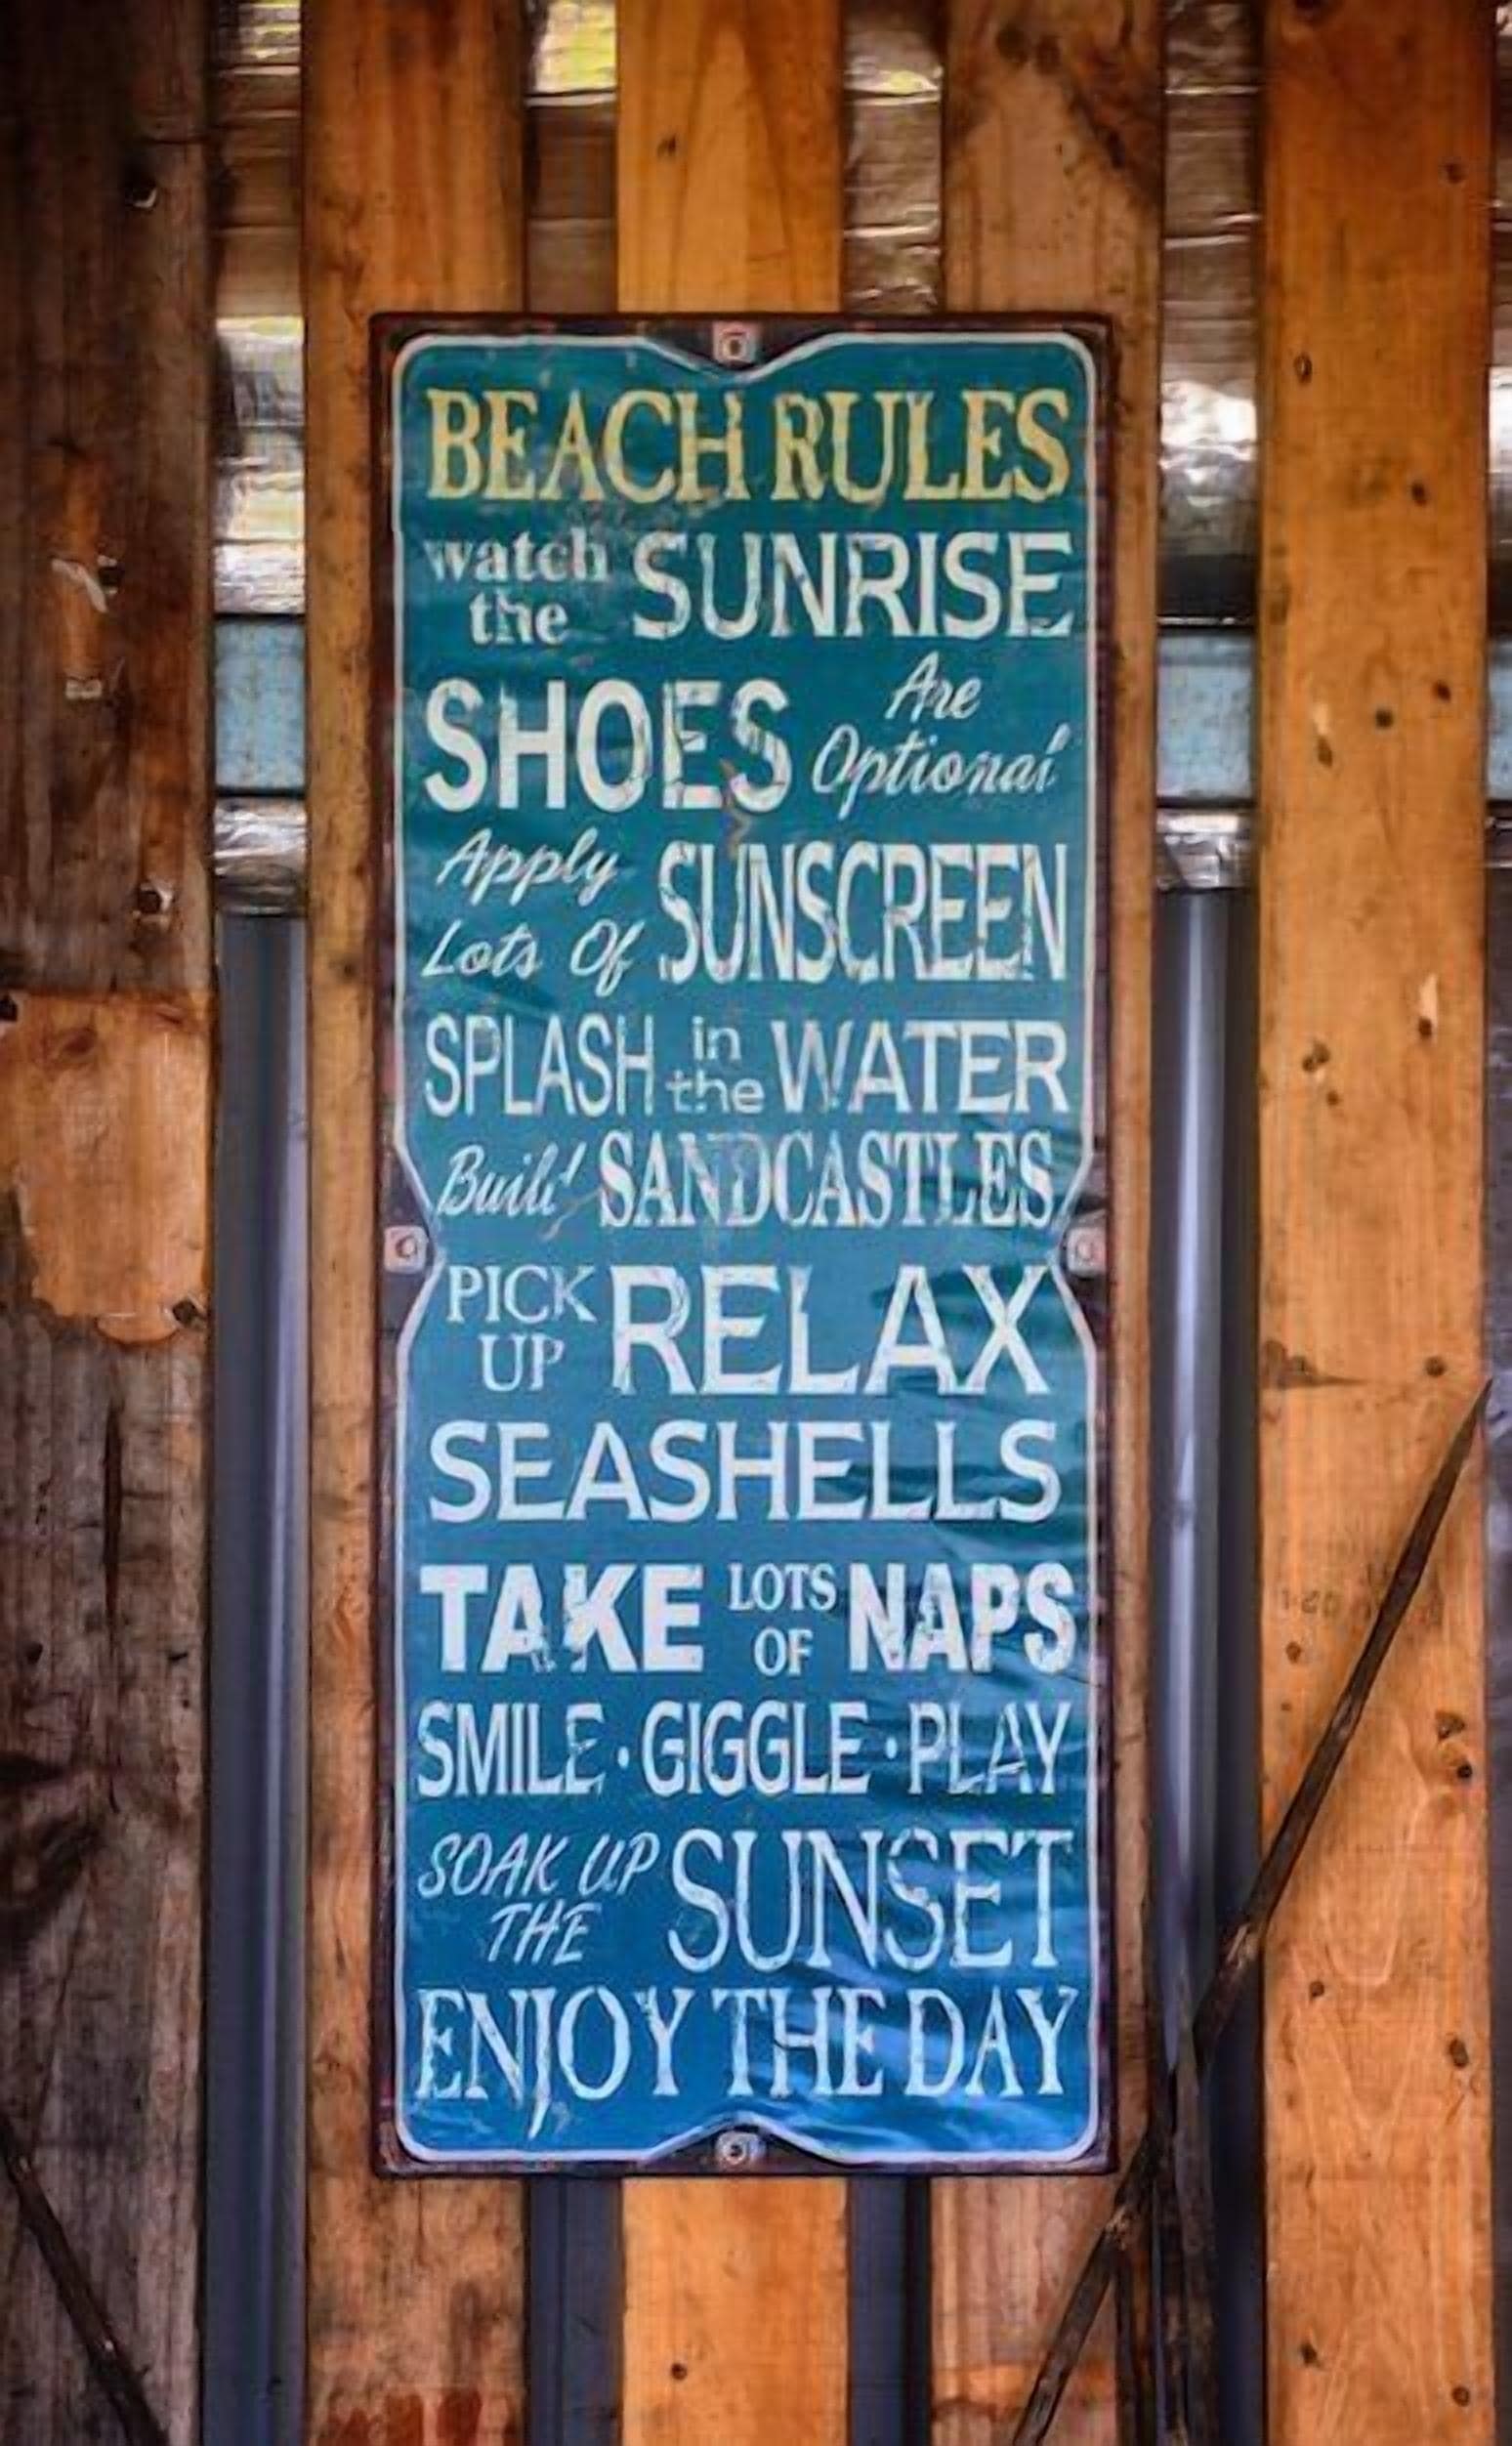 BEACH RULES
watch the SUNRISE
SHOES Are Optional
Apply Lots Of SUNSCREEN
SPLASH in the WATER
Build SANDCASTLES
PICK UP RELAX
SEASHELLS
TAKE LOTS OF NAPS
SMILE · GIGGLE · PLAY
SOAK UP THE SUNSET
ENJOY THE DAY